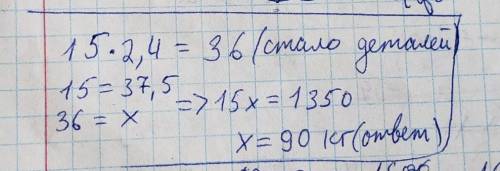 15 · 2,4 = 36 (стало деталей)
15 = 37,5
36 = x
=> 15x = 1350
x = 90 кг (ответ)